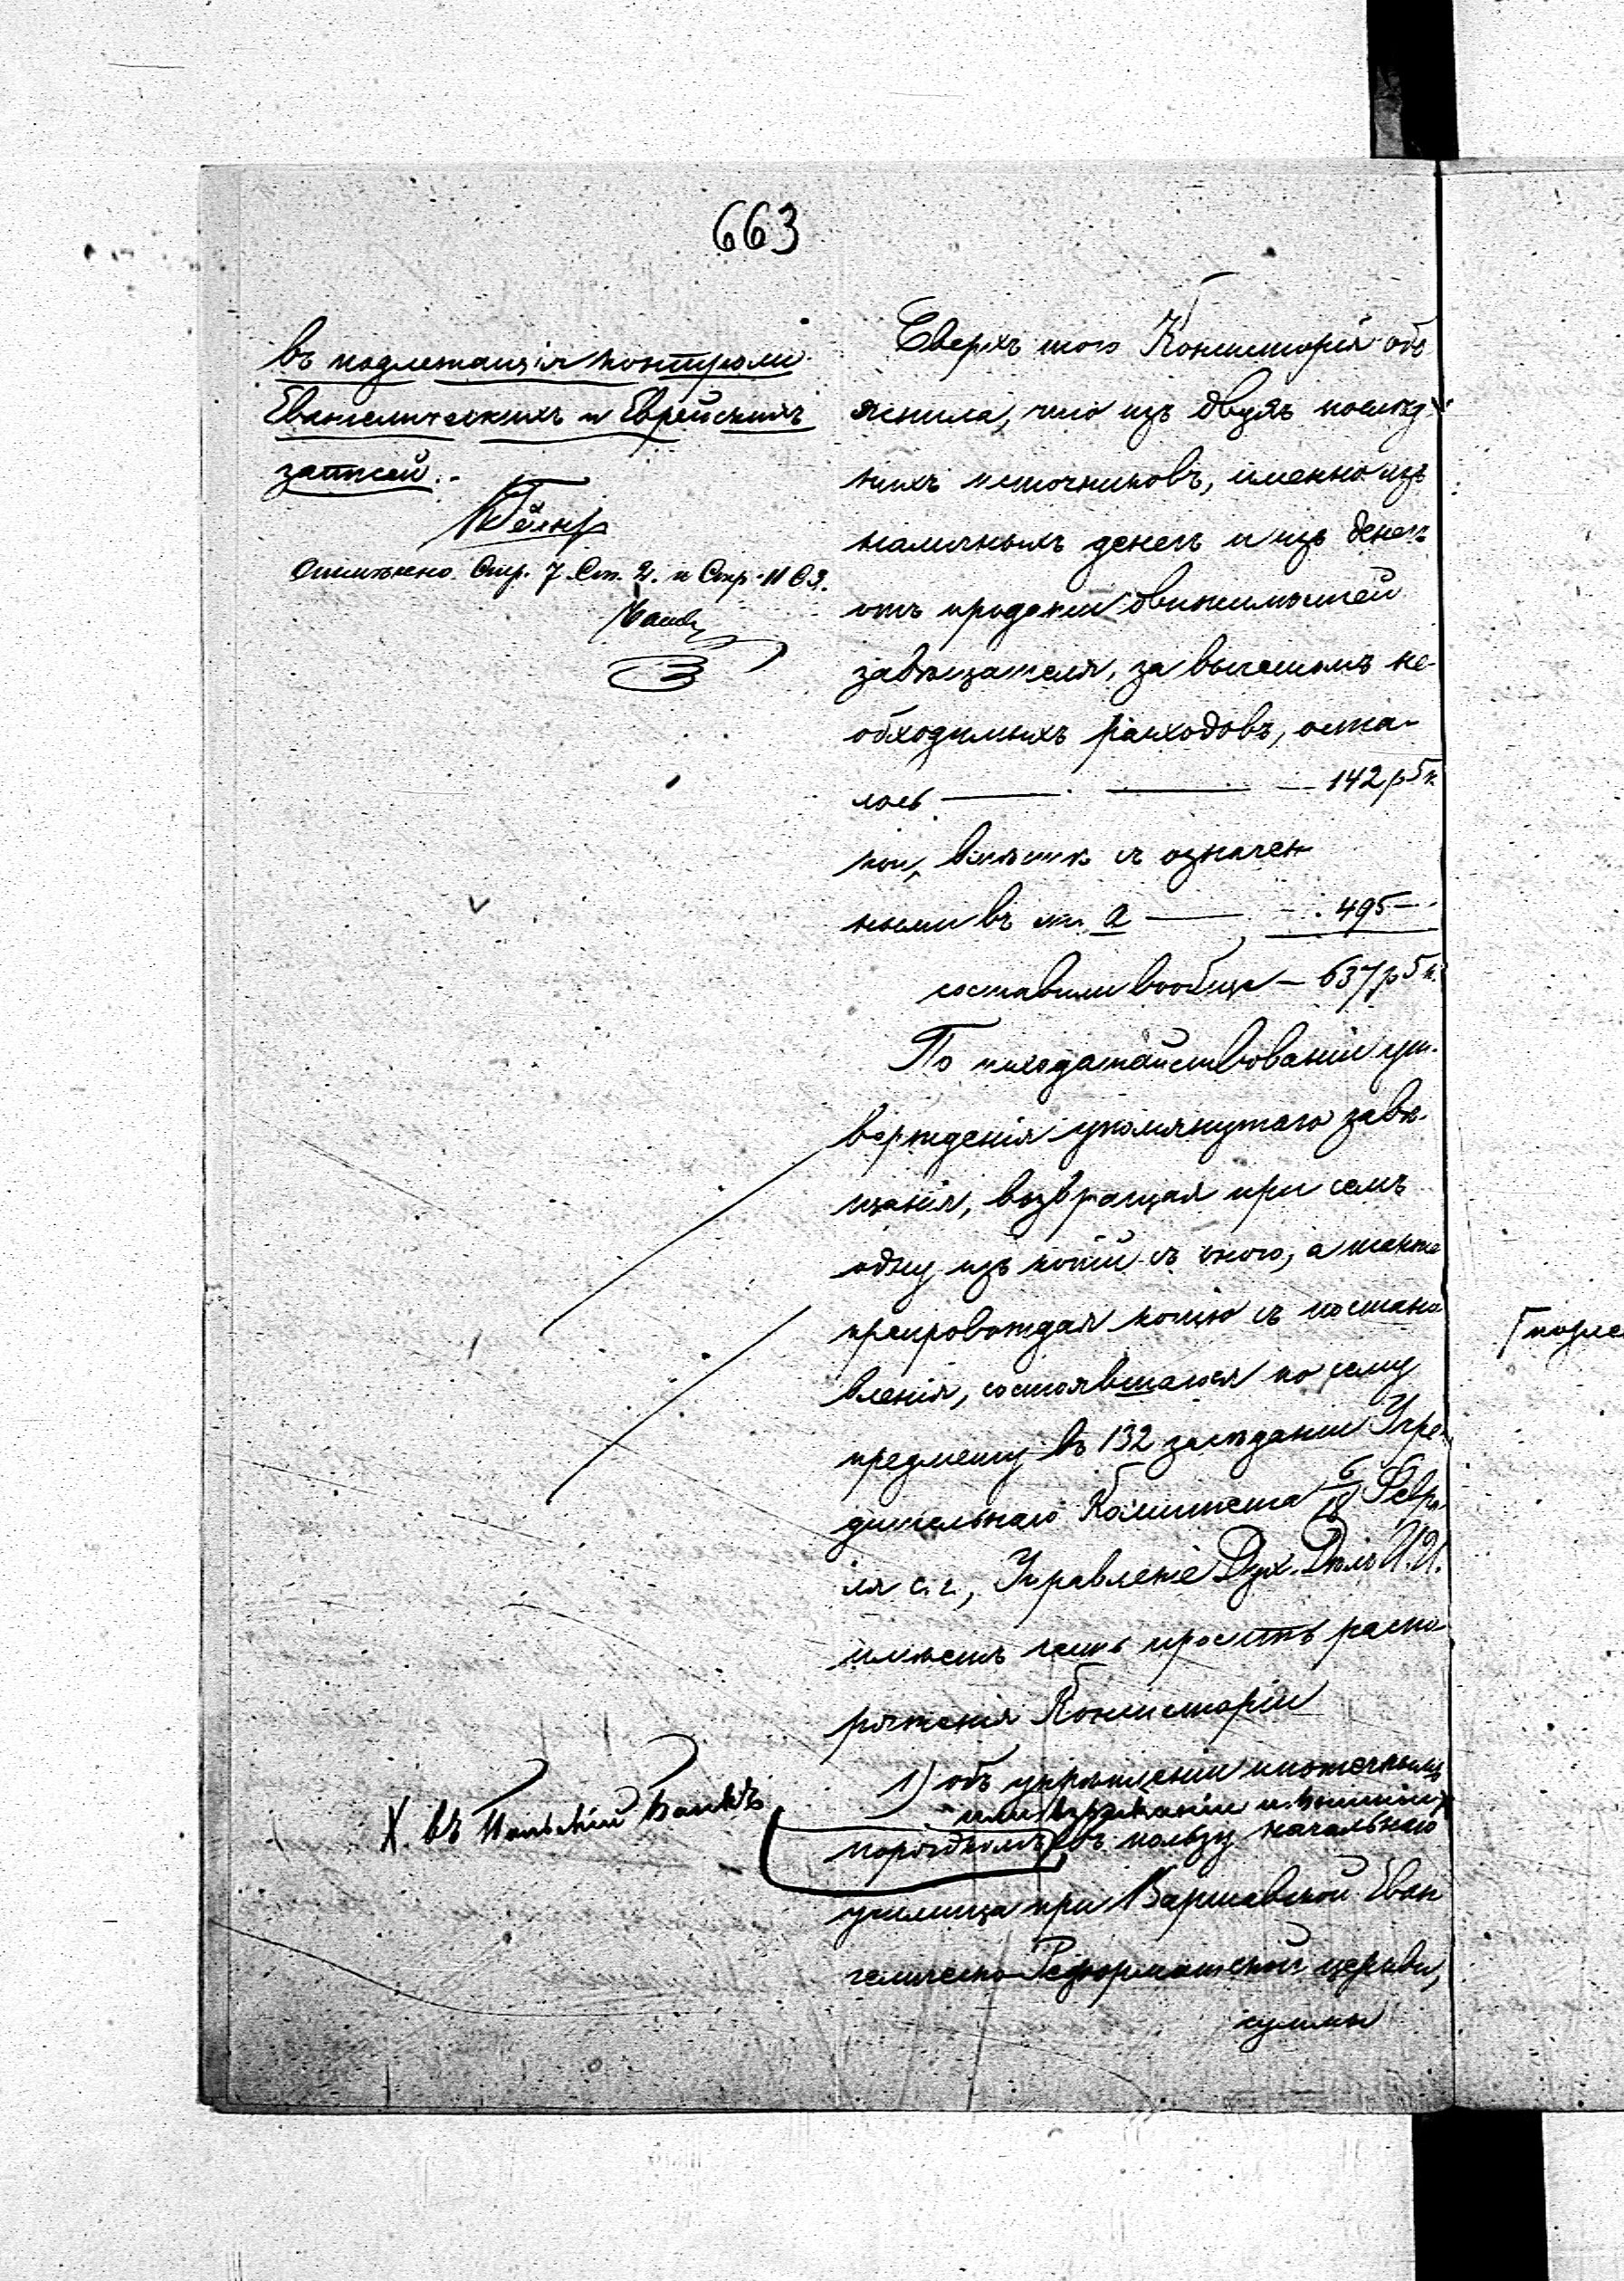 663
въ надлежащія контроли
Евангелическихъ и Еврейскихъ
записей.
Отмѣчено. Стр. 7. Ст. 2. и Стр. 11 С 3.
Х. въ Польскій Банкъ
Сверхъ того Консисторія объ
яснила, что изъ двухъ послѣд-
нихъ источниковъ, именно изъ
наличныхъ денегъ и изъ денегъ
отъ продажи движимостей
завѣщателя, за вычетомъ не-
обходимыхъ расходовъ, оста-
лось 142 р 5 к.
кои, вмѣстѣ съ означен
ными въ лит. а 495
составили вообще — 637 р 5 к.
По исходатайствованіи ут-
вержденія упомянутаго завѣ-
щанія, возвращая при семъ
одну изъ копій съ онаго, а также
препровождая копію съ постано
вленія, состоявшагося по сему
предмету въ 132 засѣданіи Учре-
дительнаго Комитета 6/18 Февра-
ля с. г., Управленіе Дух. Дѣлъ И. И.
имѣетъ честь просить распо-
ряженія Консисторіи
1) объ укрѣпленіи ипотечнымъ
порядкомъ въ пользу начальнаго
училища при Варшавской Еван
гелическо-Реформатской церкви,
суммы